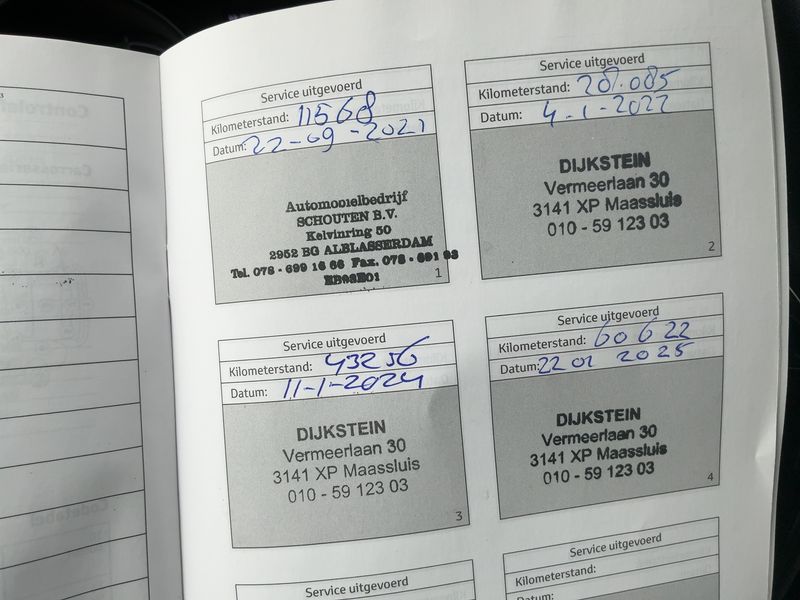 Service uitgevoerd
Kilometerstand: 11568
Datum: 22-09-2021
Automobielbedrijf
SCHOUTEN B.V.
Kelvinring 50
2952 BG ALBLASSERDAM
Tel. 078 - 699 16 66 Fax. 078 - 691 93
1
Service uitgevoerd
Kilometerstand: 28.085
Datum: 4-1-2022
DIJKSTEIN
Vermeerlaan 30
3141 XP Maassluis
010 - 59 123 03
2
Service uitgevoerd
Kilometerstand: 43256
Datum: 11-1-2024
DIJKSTEIN
Vermeerlaan 30
3141 XP Maassluis
010 - 59 123 03
3
Service uitgevoerd
Kilometerstand: 60622
Datum: 22 01 2025
DIJKSTEIN
Vermeerlaan 30
3141 XP Maassluis
010 - 59 123 03
4
Service uitgevoerd
Service uitgevoerd
Kilometerstand:
Datum: